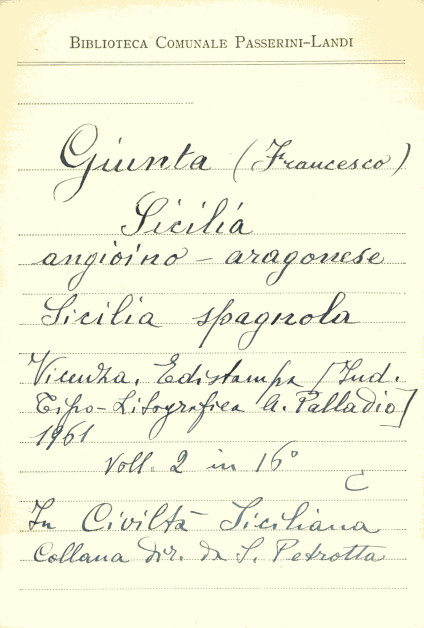 BIBLIOTECA COMUNALE PASSERINI-LANDI
Giunta (Francesco)
Sicilia
angioino - aragonese
Sicilia spagnola
Vicenza. Edistampa [Ind.
Tipo-Litografica A. Palladio]
1961
Voll. 2 in 16°
C
In Civiltà Siciliana
Collana dir. da S. Petrotta